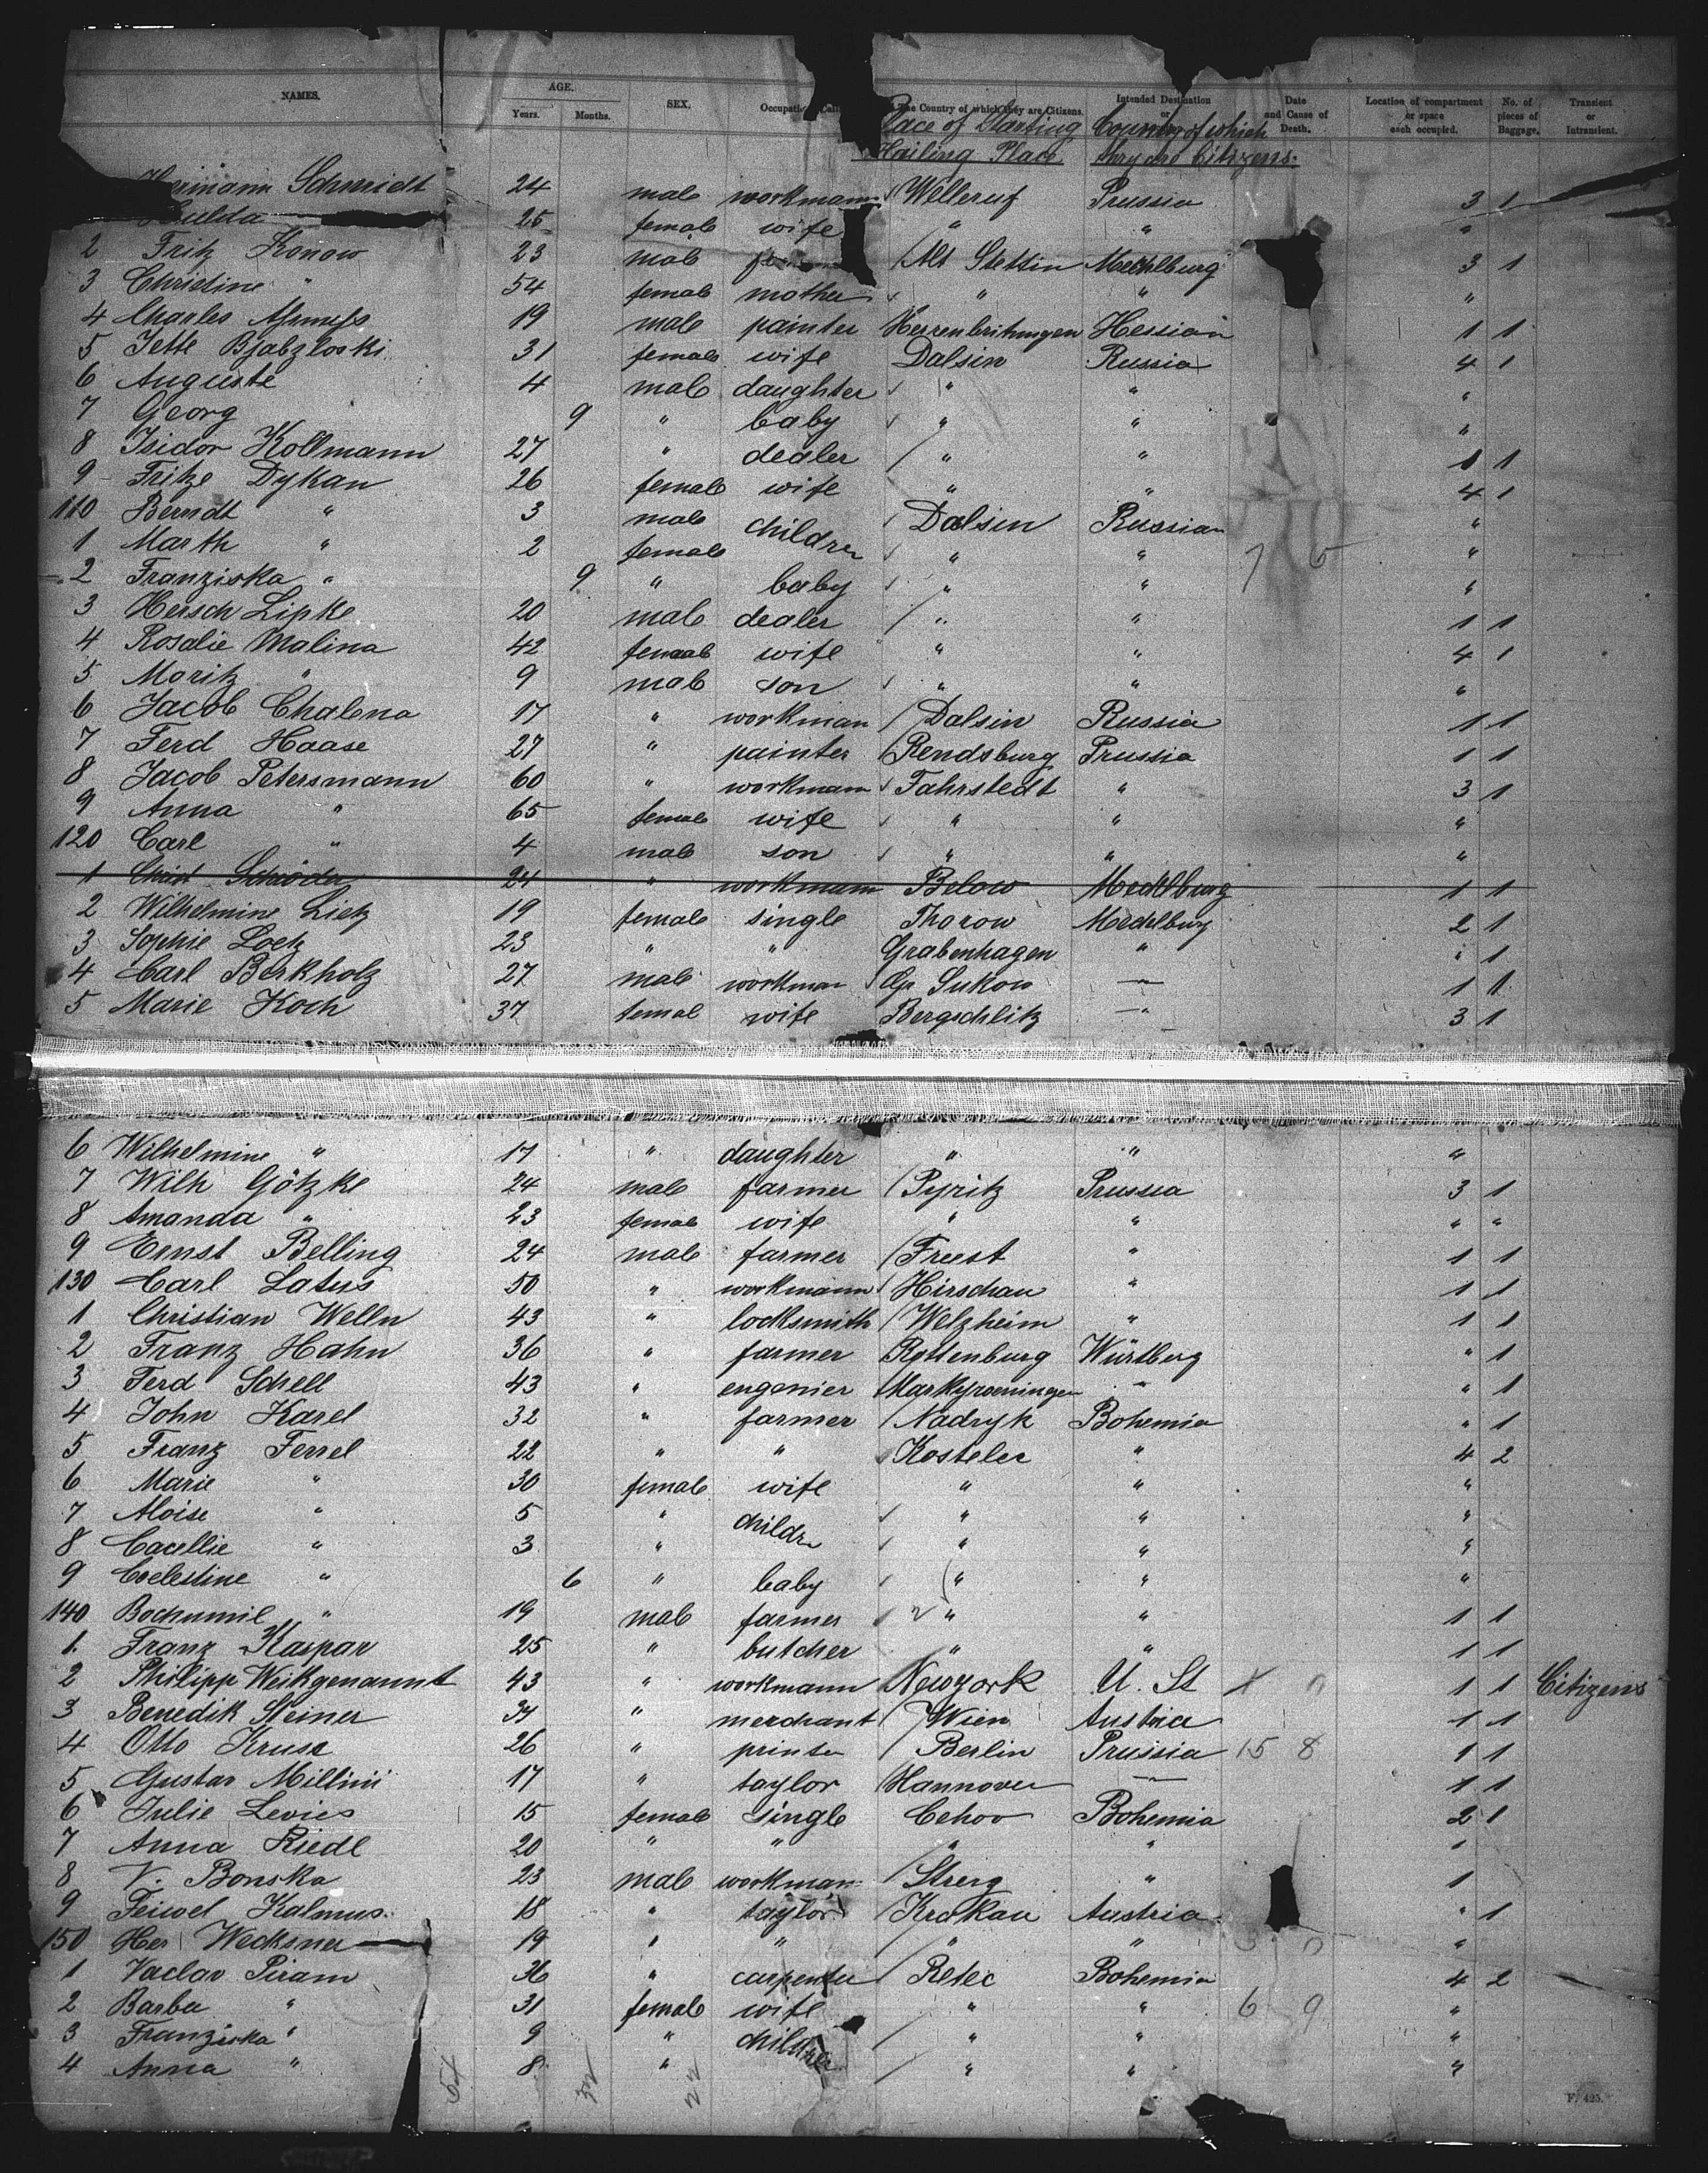 NAMES. AGE. Years. Months. SEX. The Country of which they are Citizens. Intended Destination or Date and Cause of Death. Location of compartment or space each occupied. No. of pieces of Baggage. Transient or Intransient.
Place of Starting Country of which
Hailing Place they are Citizens.
Hermann Schmidt 24 male workmann Welleruf Prussia 3 1
Hulda 25 female wife " " "
2 Fritz Konow 23 male Alt Stettin Mecklburg 3 1
3 Christine " 54 female mother " " "
4 Charles 19 male painter Herrenbritungen Hessian 1 1
5 Jette Bjabzloski 31 female wife Dalsin Russia 4 1
6 Auguste 4 male daughter " " "
7 Georg 9 " baby " " "
8 Isidor Kollmann 27 " dealer " " 1 1
9 Fritze Dykan 26 female wife " " 4 1
110 Berndt " 3 male children Dalsin Russian "
1 Marth " 2 female " " 7 5 "
2 Franziska " 9 " baby " " "
3 Hersch Lipke 20 male dealer " " 1 1
4 Rosalie Malina 42 female wife " " 4 1
5 Moritz " 9 male son " " "
6 Jacob Chalena 17 " workman Dalsin Russia 1 1
7 Ferd Haase 27 " painter Rendsburg Prussia 1 1
8 Jacob Petersmann 60 " workmann Fahrstedt " 3 1
9 Anna " 65 female wife " " "
120 Carl " 4 male son " " "
1 Christ Schröder 24 " workmann Below Mecklburg 1 1
2 Wilhelmine Lietz 19 female single Thorow Mecklburg 2 1
3 Sophie Loetz 23 " " Grabenhagen " " 1
4 Carl Berkholz 27 male workman Gr Sukow " 1 1
5 Marie Koch 37 female wife Bergschlitz " 3 1
6 Wilhelmine " 17 " daughter " " "
7 Wilh Götzke 24 male farmer Pyritz Prussia 3 1
8 Amanda " 23 female wife " " " "
9 Ernst Belling 24 male farmer Freest " 1 1
130 Carl Latus 50 " workmann Hirschau " 1 1
1 Christian Welln 43 " locksmith Welzheim " 1 1
2 Franz Hahn 36 " farmer Rottenburg Würtberg " 1
3 Ferd Schell 43 " engenier Markgroeningen " " 1
4 John Karel 32 " farmer Nadryk Bohemia " 1
5 Franz Ferrel 22 " " Kostelec " 4 2
6 Marie " 30 female wife " " "
7 Aloise " 5 " childrn " " "
8 Cacellie " 3 " " " "
9 Coelestine " 6 " baby " " "
140 Bochumil " 19 male farmer " " 1 1
1 Franz Kaspar 25 " butcher " " 1 1
2 Philipp Weikgenannt 43 " workmann Newyork U. St 1 1 Citizens
3 Benedik Steiner 34 " merchant Wien Austria 1 1
4 Otto Kruse 26 " printer Berlin Prussia 15 8 1 1
5 Gustav Millini 17 " taylor Hannover " 1 1
6 Julie Levies 15 female single Cehov Bohemia 2 1
7 Anna Riedl 20 " " " " "
8 V. Bonska 23 male workman Streng " 1
9 Feiwel Kalmus 18 " taylor Krakau Austria " 1
150 Her Wecksner 19 " " " " 3 0 "
1 Vaclav Piram 36 " carpenter Retec Bohemia 4 2
2 Barba " 31 female wife " " 6 9 "
3 Franziska " 9 " children " " "
4 Anna " 8 " " " "
54 32 22
F. 425.